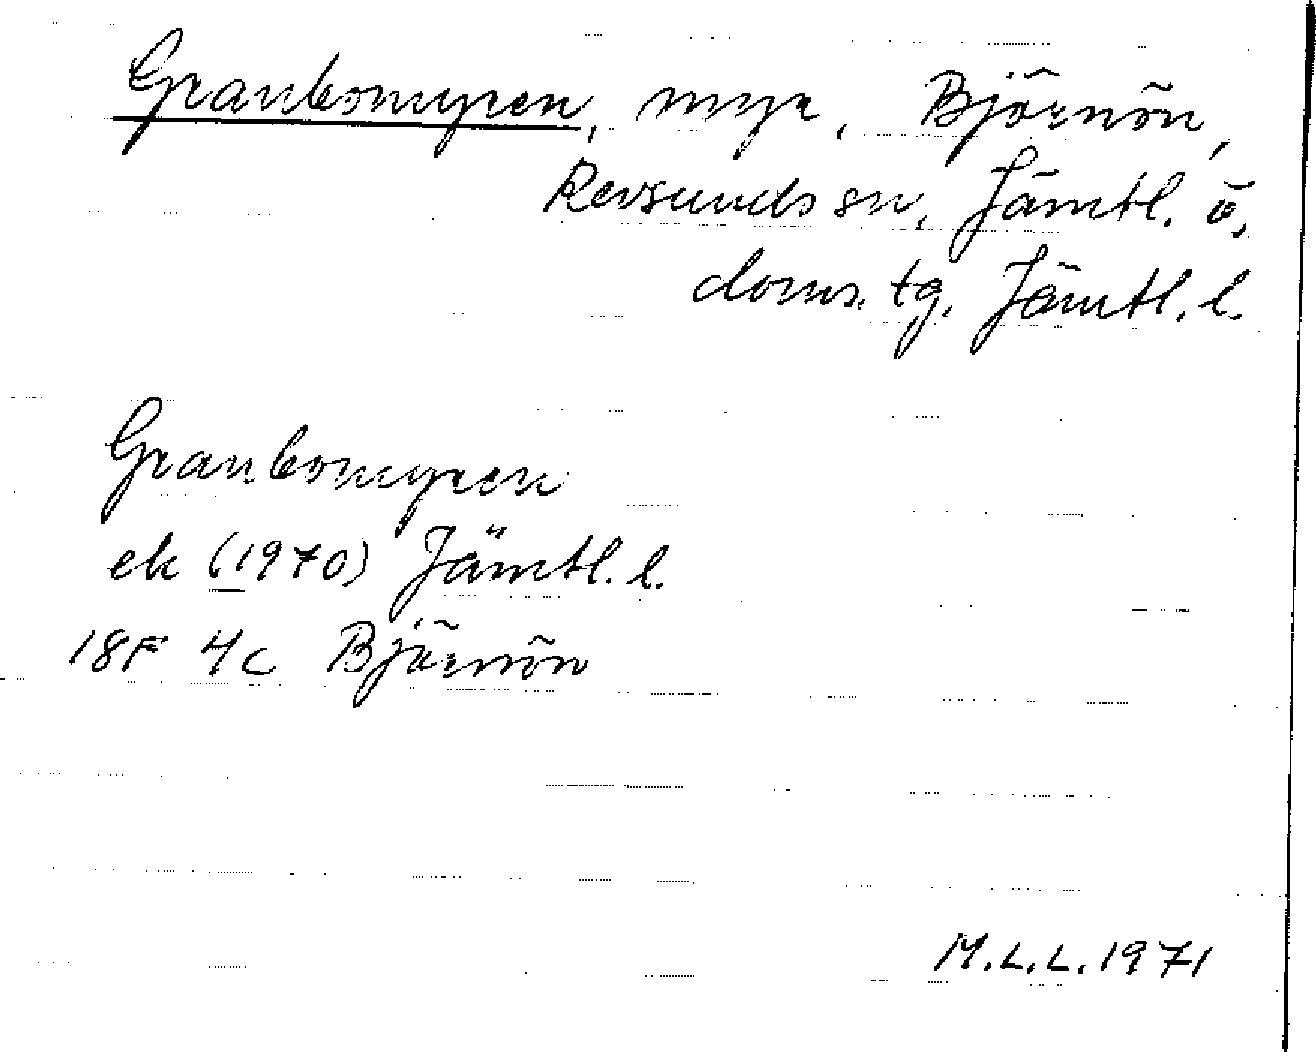 Granbomyren, myr, Björnön,
Revsunds sn, Jämtl. ö.
doms. tg. Jämtl. l.
Granbomyren
ek (1970) Jämtl. l.
18F 4c Björnön
M.L.L. 1971